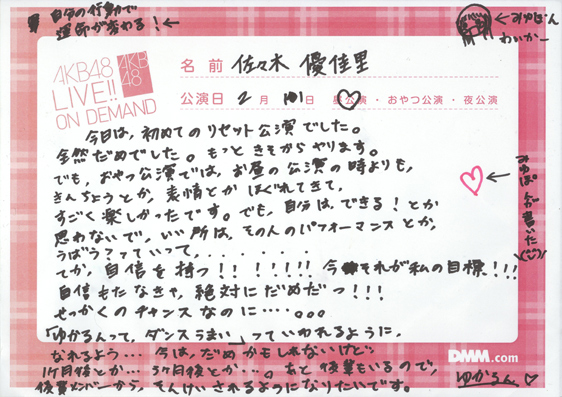 自分の行動で
運命が変わる！←
←みゆぽん
わいかー
AKB48
LIVE!!
ON DEMAND
AKB
48
名前 佐々木 優佳里
公演日 2月 日 昼公演・おやつ公演・夜公演
今日は、初めてのリセット公演でした。
全然だめでした。もっときそからやります。
でも、おやつ公演では、お昼の公演の時よりも、
きんちょうとか、表情とかほぐれてきて、
すごく楽しかったです。でも、自分は、できる！とか
思わないで、いい所は、その人のパフォーマンスとか、
うばう？っていって、......
てか、自信を持つ！！！！！！！今それが私の目標！！！
自信もたなきゃ、絶対にだめだっ！！！
せっかくのチャンスなのに…。。。
「ゆかるんって、ダンスうまい」っていわれるように、
なれるよう…今は、だめかもしれないけど
1ヶ月後とか…3ヶ月後とか…。あと後輩もいるので、
後輩メンバーから、そんけいされるようになりたいです。
←みゆぽが書いた
DMM.com
ゆかるん♡